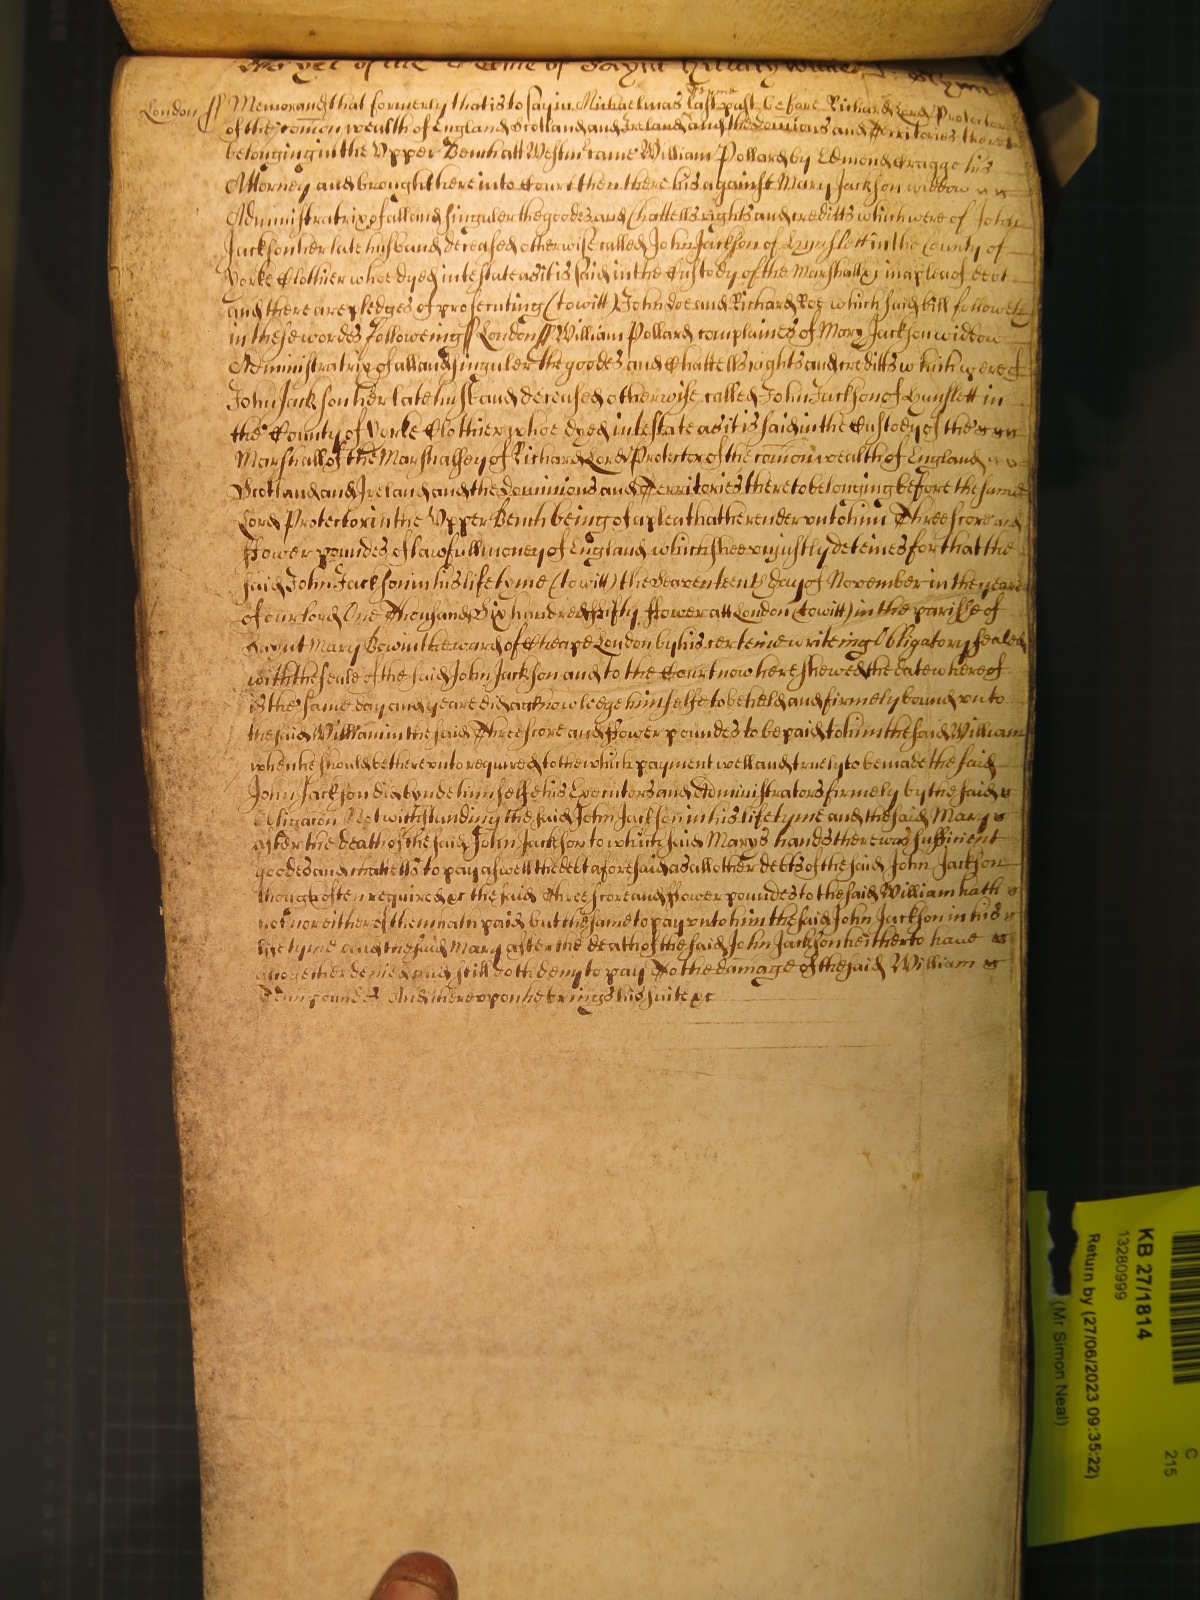 As yet of the Terme of Saynt Hillary Witnes
London ss Memorand that formerly that is to say in Michaelmas Terme last past before Richard Lord Protector
of the com̄on wealth of England Scotland and Ireland and the dominions and Territories thereto
belonging in the Vpper Bench att Westm̄ came William Pollard by Edmond Craggo his
Attorney and brought here into Court then there his against Mary Jackson widdow
Administratrix of all and singuler the goodes and Chattells rights and creditts which were of John
Jackson her late husband deceased otherwise called John Jackson of Hunslett in the County of
Yorke Clothier whoe dyed intestate as it is said in the Custody of the Marshall &c in a plea of debt
and there are pledges of prosecuting (to witt) John Doe and Richard Roe which said bill followeth
in these wordes followeing ss London ss William Pollard complaines of Mary Jackson widdow
Administratrix of all and singuler the goodes and Chattells rights and creditts which were of
John Jackson her late husband deceased otherwise called John Jackson of Hunslett in
the County of Yorke Clothier whoe dyed intestate as it is said in the Custody of the
Marshall of the Marshalsey of Richard Lord Protector of the com̄on wealth of England
Scotland and Ireland and the dominions and Territories thereto belonging before the same
Lord Protector in the Vpper Bench being of a plea that he render vnto him Threescore and
ffower poundes of lawfull money of England which shee vniustly deteines for that the
said John Jackson in his life tyme (to witt) the Seaventeenth day of November in the yeare
of our lord One Thousand Six hundred ffifty ffower att London (to witt) in the parisshe of
Saynt Mary Bow in the ward of Cheape London by his certeine writeing Obligatory sealed
with the seale of the said John Jackson and to the Court now here shewed the date whereof
is the same day and yeare did acknowledge himselfe to be held and firmely bound vnto
the said William in the said Threescore and ffower poundes to be paid to him the said William
when he should be therevnto required to the which payment well and truely to be made the said
John Jackson did bynde himselfe his Executors and Administrators firmely by the said
Obligacon Notwithstanding the said John Jackson in his life tyme and the said Mary
after the death of the said John Jackson to which said Marys hands there was sufficient
goodes and chattells to pay aswell the debt aforesaid as all other debts of the said John Jackson
though often required &c the said Threescore and ffower poundes to the said William hath
not nor either of them hath paid but the same to pay vnto him the said John Jackson in his
life tyme and the said Mary after the death of the said John Jackson heitherto have
altogether denied and still doth deny to pay To the damage of the said William
Tenn poundes And therevpon he brings his suite &c
KB 27/1814
13280999
Return by (27/06/2023 09:35:22)
(Mr Simon Neal)
C
215